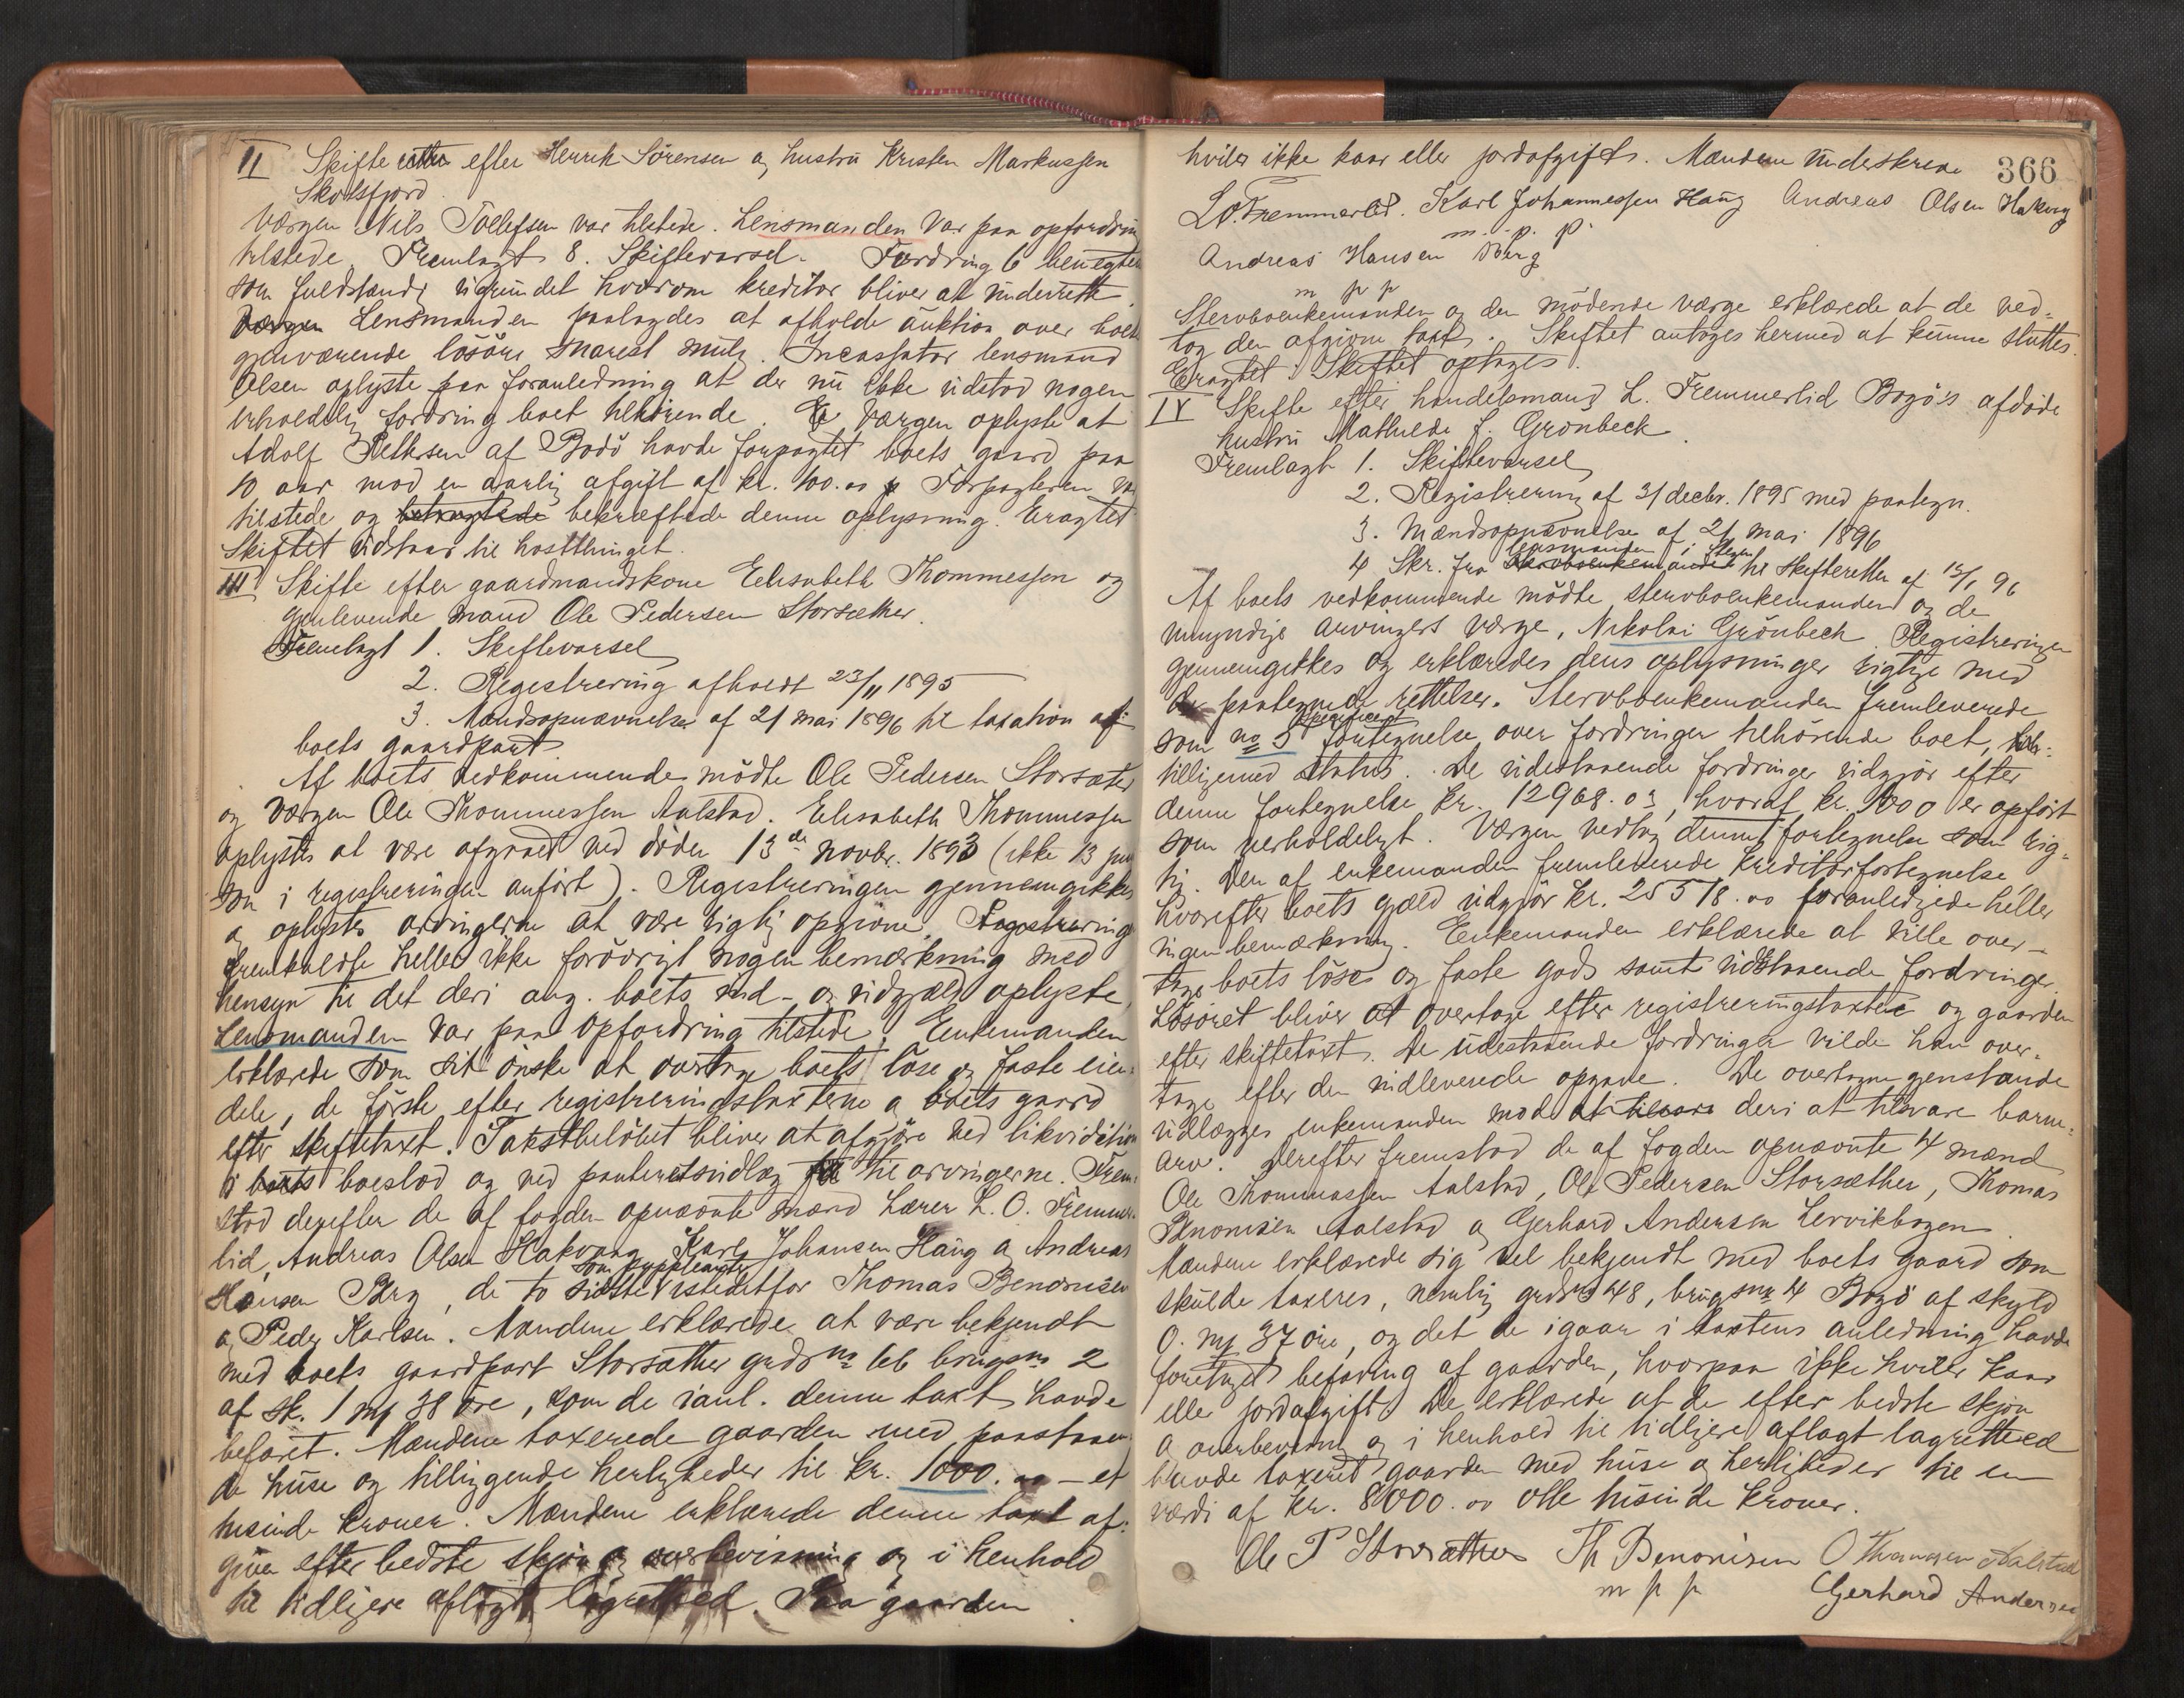 II Skifte efter Henrik Sörensen og hustru Kristen Markussen
Skotsfjord.
Værgen Nils Tollefsen var tilstede. Lensmanden var paa opfordring
tilstede. Fremlagt 8. Skiftevarsel. Fordring 6 benegtes
som fuldstændig ugrundet hvorom kreditor bliver at underrette.
Lensmanden paalagdes at afholde auktion over boets
gjenværende lösöre snarest mulig. Incassator lensmand
Olsen oplyste paa foranledning at der nu ikke udstod nogen
erholdelig fordring boet tilhörende. Værgen oplyste at
Adolf Pettersen af Bodö havde forpagtet boets gaard paa
10 aar mod en aarlig afgift af kr. 100.00 Forpagteren var
tilstede og betragtede bekræftede denne oplysning. Eragtet
Skiftet udstaar til hostthinget.
III Skifte efter gaardmandskone Elisabeth Thommessen og
gjenlevende mand Ole Pedersen Storsæther.
Fremlagt 1. Skiftevarsel
2. Registrering afholdt 23/11 1895
3. Mandsopnævnelse af 21 mai 1896 til taxation af
boets gaardpart
Af boets vedkommende mödte Ole Pedersen Storsæter
og værgen Ole Thommessen Aalstad. Elisabeth Thommessen
oplystes at være afgaaet ved döden 13de novbr. 1893 (ikke 13 juni
som i registreringen anfört). Registreringen gjennemgikkes
og oplystes arvingerne at være rigtig opgivne. Registrering
fremkaldte heller ikke forövrigt nogen bemærkning med
hensyn til det deri ang. boets ind- og udgjæld oplyste.
Lensmanden var paa opfordring tilstede. Enkemanden
erklærede som sit önske at overtage boets löse og faste eien-
dele, de förste efter registreringstaxterne og boets gaard
efter skiftetaxt. Takstbelöbet bliver at afgjöre ved likvidation
i boets boeslod og ved panteretsudlæg til arvingerne. Frem-
stod derefter de af fogden opnævnte mænd Lærer L. O. Fremmer-
lid, Andreas Olsen Hakvaag, Karl Johansen Haug og Andreas
Hansen Berg, de to sidste som suppleanter istedetfor Thomas Benonisen
og Peder Karlsen. Mændene erklærede at være bekjendt
med boets gaardpart Storsæther grds no 66 brugsno 2
af sk. 1 mk 38 öre, som de i anl. denne taxt havde
befaret. Mændene taxerede gaarden med paastaaen-
de huse og tilliggende herligheder til kr. 1000.00 – et
tusinde kroner. Mændene erklærede denne taxt af-
given efter bedste skjön og overbevisning og i henhold
til tidligere aflagt lagretted. Paa gaarden
366
hviler ikke kaar eller jordafgift. Mændene underskrev
L.O. Fremmerlid. Karl Johannessen Haug Andreas Olsen Hakvag
m. p. p.
Andreas Hansen Berg
m p p
Stervboenkemanden og den mödende værge erklærede at de ved-
tog den afgivne taxt. Skiftet antoges hermed at kunne sluttes.
Eragtet: Skiftet optages.
IV Skifte efter handelsmand L. Fremmerlid Bogö's afdöde
hustru Mathilde f. Grönbeck.
Fremlagt 1. Skiftevarsel
2. Registrering af 31 decbr. 1895 med paategn.
3. Mandsopnævnelse af 21 mai 1896
4 Skr. fra Stervboenkemanden lensmanden i Stegen til Skifteretten af 15/1 96
Af boets vedkommende mödte stervboenkemanden og de
umyndige arvingers værge, Nikolai Grönbech. Registreringen
gjennemgikkes og erklæredes dens oplysninger rigtige med
de paategnede rettelser. Stervboenkemanden fremleverede
som no 5 specificeret fortegnelse over fordringer tilhörende boet,
tilligemed status. De udestaaende fordringer udgjör efter
denne fortegnelse kr. 12968.03, hvoraf kr. 1000 er opfört
som uerholdeligt. Værgen vedtog denne fortegnelse som rig-
tig. Den af enkemanden fremleverede kreditorfortegnelse,
hvorefter boets gjæld udgjör kr. 25518.00 foranledigede heller
ingen bemærkning. Enkemanden erklærede at ville over-
tage boets löse og faste gods samt udestaaende fordringer.
Lösöret bliver at overtage efter registreringstaxten og gaarden
efter skiftetaxt. De udestaaende fordringer vilde han over-
tage efter den indleverede opgave. De overtagne genstande
udlægges enkemanden mod at tilsvare deri at tilsvare barne-
arv. Derefter fremstod de af fogden opnævnte 4 mænd
Ole Thommassen Aalstad, Ole Pedersen Storsæther, Thomas
Benonisen Aalstad og Gerhard Andersen Lervikbogen.
Mændene erklærede sig vel bekjendt med boets gaard som
skulde taxeres, nemlig grds no 48, brugsno 4 Bogö af skyld
0. mk 37 öre, og det de igaar i taxtens anledning havde
foretaget befaring af gaarden, hvorpaa ikke hviler kaar
eller jordafgift. De erklærede at de efter bedste skjön
og overbevisning og i henhold til tidligere aflagt lagretted
havde taxeret gaarden med huse og herligheder til en
værdi af kr. 8000.00 otte tusinde kroner.
Ole P Storsæther Th Benonisen O Thomassen Aalstad
m p p Gerhard Andersen